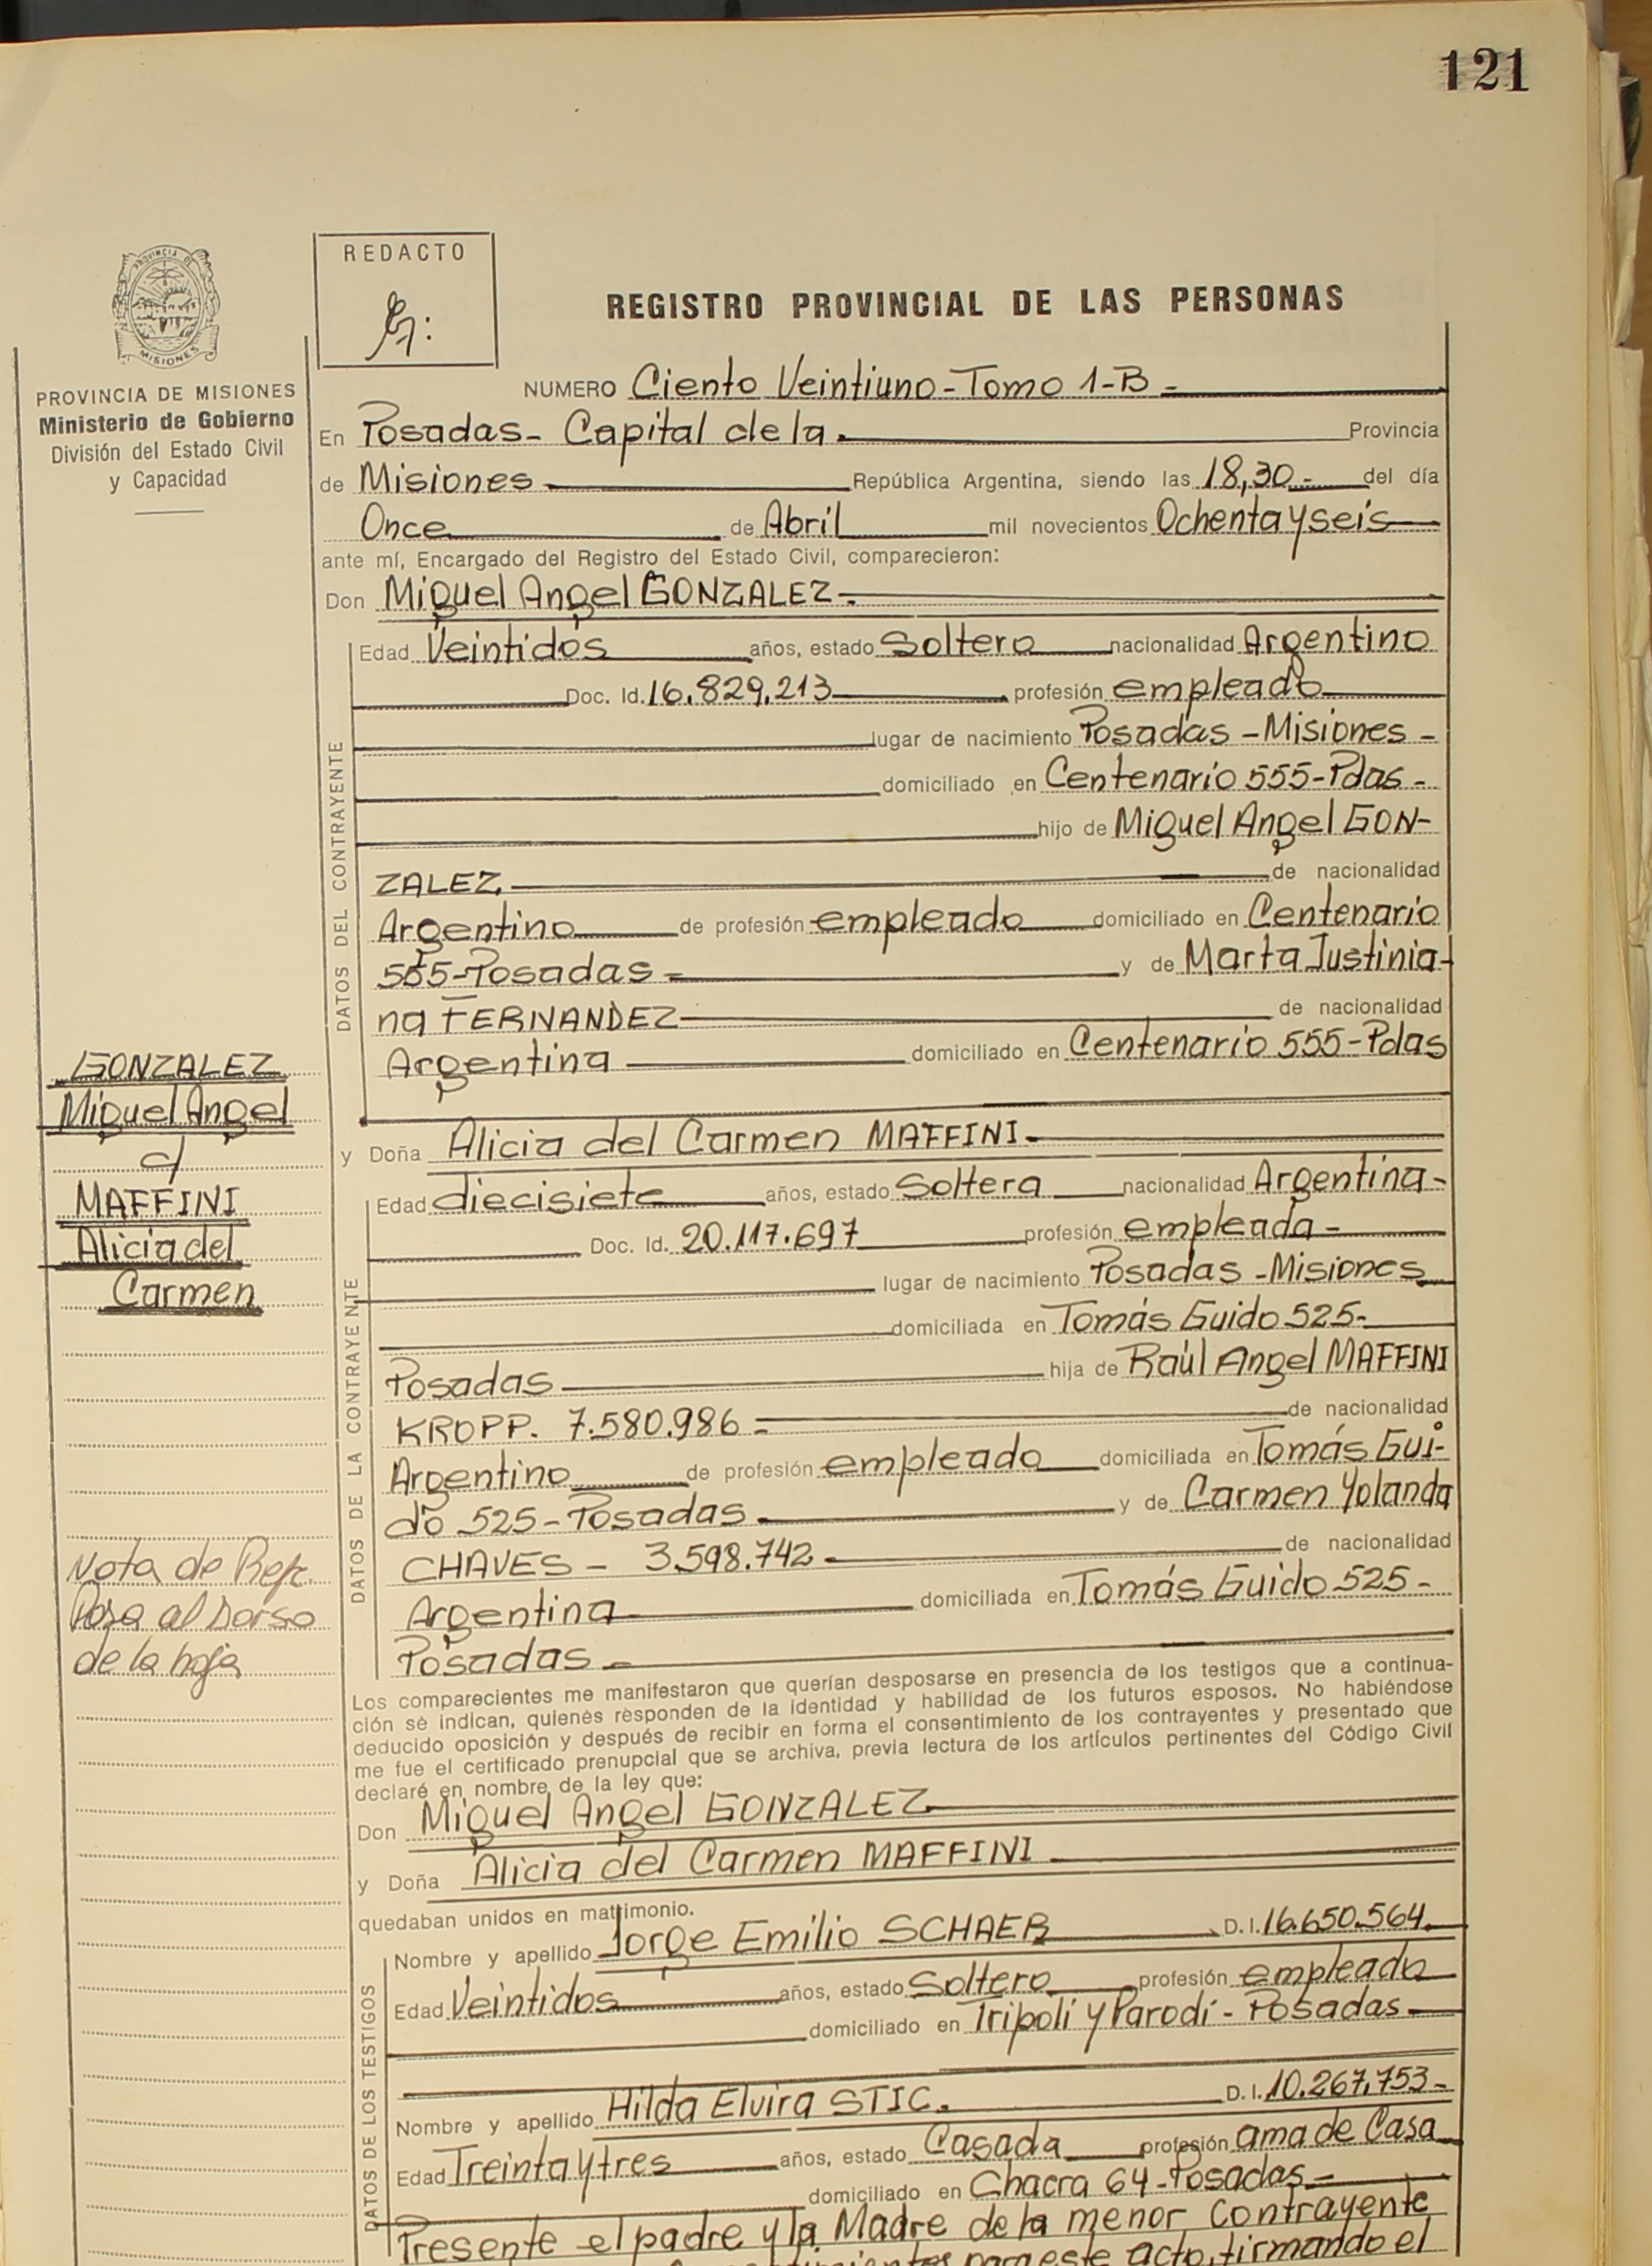 121
REDACTO
PROVINCIA DE
MISIONES
PROVINCIA DE MISIONES
Ministerio de Gobierno
División del Estado Civil
y Capacidad
REGISTRO PROVINCIAL DE LAS PERSONAS
NUMERO Ciento Veintiuno-Tomo 1-B-
En Posadas- Capital de la Provincia
de Misiones República Argentina, siendo las 18,30.- del día
Once de Abril mil novecientos Ochenta y seis
ante mí, Encargado del Registro del Estado Civil, comparecieron:
Don Miguel Angel GONZALEZ.-
DATOS DEL CONTRAYENTE
Edad Veintidos años, estado Soltero nacionalidad Argentino
Doc. Id. 16.829.213 profesión empleado
lugar de nacimiento Posadas-Misiones-
domiciliado en Centenario 555-Pdas-
hijo de Miguel Angel GON-
ZALEZ. de nacionalidad
Argentino de profesión empleado domiciliado en Centenario
555-Posadas- y de Marta Justinia-
na FERNANDEZ de nacionalidad
Argentina domiciliado en Centenario 555-Pdas
GONZALEZ
Miguel Angel
c/
MAFFINI
Alicia del
Carmen
y Doña Alicia del Carmen MAFFINI.
DATOS DE LA CONTRAYENTE
Edad diecisiete años, estado Soltera nacionalidad Argentina-
Doc. Id. 20.117.697 profesión empleada-
lugar de nacimiento Posadas-Misiones
domiciliada en Tomás Guido 525-
Posadas hija de Raúl Angel MAFFINI
KROPP. 7.580.986- de nacionalidad
Argentino de profesión empleado domiciliada en Tomás Gui-
do 525-Posadas. y de Carmen Yolanda
CHAVES- 3.598.742- de nacionalidad
Argentina domiciliada en Tomás Guido 525-
Posadas-
Nota de Rep.
Pasa al Dorso
de la hoja
Los comparecientes me manifestaron que querían desposarse en presencia de los testigos que a continua-
ción se indican, quienes responden de la identidad y habilidad de los futuros esposos. No habiéndose
deducido oposición y después de recibir en forma el consentimiento de los contrayentes y presentado que
me fue el certificado prenupcial que se archiva, previa lectura de los artículos pertinentes del Código Civil
declaré en nombre de la ley que:
Don Miguel Angel GONZALEZ
y Doña Alicia del Carmen MAFFINI
quedaban unidos en matrimonio.
DATOS DE LOS TESTIGOS
Nombre y apellido Jorge Emilio SCHAER D.I. 16.650.564
Edad Veintidos años, estado Soltero profesión empleado
domiciliado en Tripoli y Parodi-Posadas-
Nombre y apellido Hilda Elvira STIC. D.I. 10.267.753-
Edad Treinta y tres años, estado Casada profesión ama de Casa
domiciliado en Chacra 64-Posadas-
Presente el padre y la Madre de la menor Contrayente
para este acto, firmando el